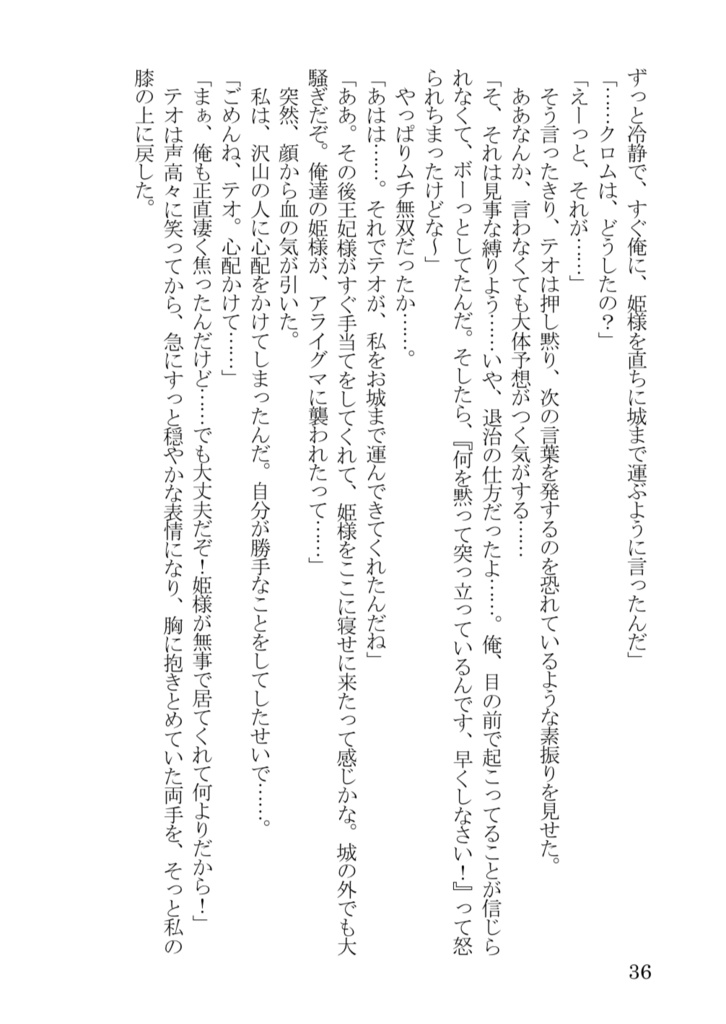 ずっと冷静で、すぐ俺に、姫様を直ちに城まで運ぶように言ったんだ」
「……クロムは、どうしたの？」
「えーっと、それが……」
そう言ったきり、テオは押し黙り、次の言葉を発するのを恐れているような素振りを見せた。
ああなんか、言わなくても大体予想がつく気がする……
「そ、それは見事な縛りよう……いや、退治の仕方だったよ……。俺、目の前で起こってることが信じら
れなくて、ボーっとしてたんだ。そしたら、『何を黙って突っ立っているんです、早くしなさい！』って怒
られちまったけどな〜」
やっぱりムチ無双だったか……。
「あはは……。それでテオが、私をお城まで運んできてくれたんだね」
「ああ。その後王妃様がすぐ手当てをしてくれて、姫様をここに寝せに来たって感じかな。城の外でも大
騒ぎだぞ。俺達の姫様が、アライグマに襲われたって……」
突然、顔から血の気が引いた。
私は、沢山の人に心配をかけてしまったんだ。自分が勝手なことをしてしたせいで……。
「ごめんね、テオ。心配かけて……」
「まぁ、俺も正直凄く焦ったんだけど……でも大丈夫だぞ！姫様が無事で居てくれて何よりだから！」
テオは声高々に笑ってから、急にすっと穏やかな表情になり、胸に抱きとめていた両手を、そっと私の
膝の上に戻した。
36